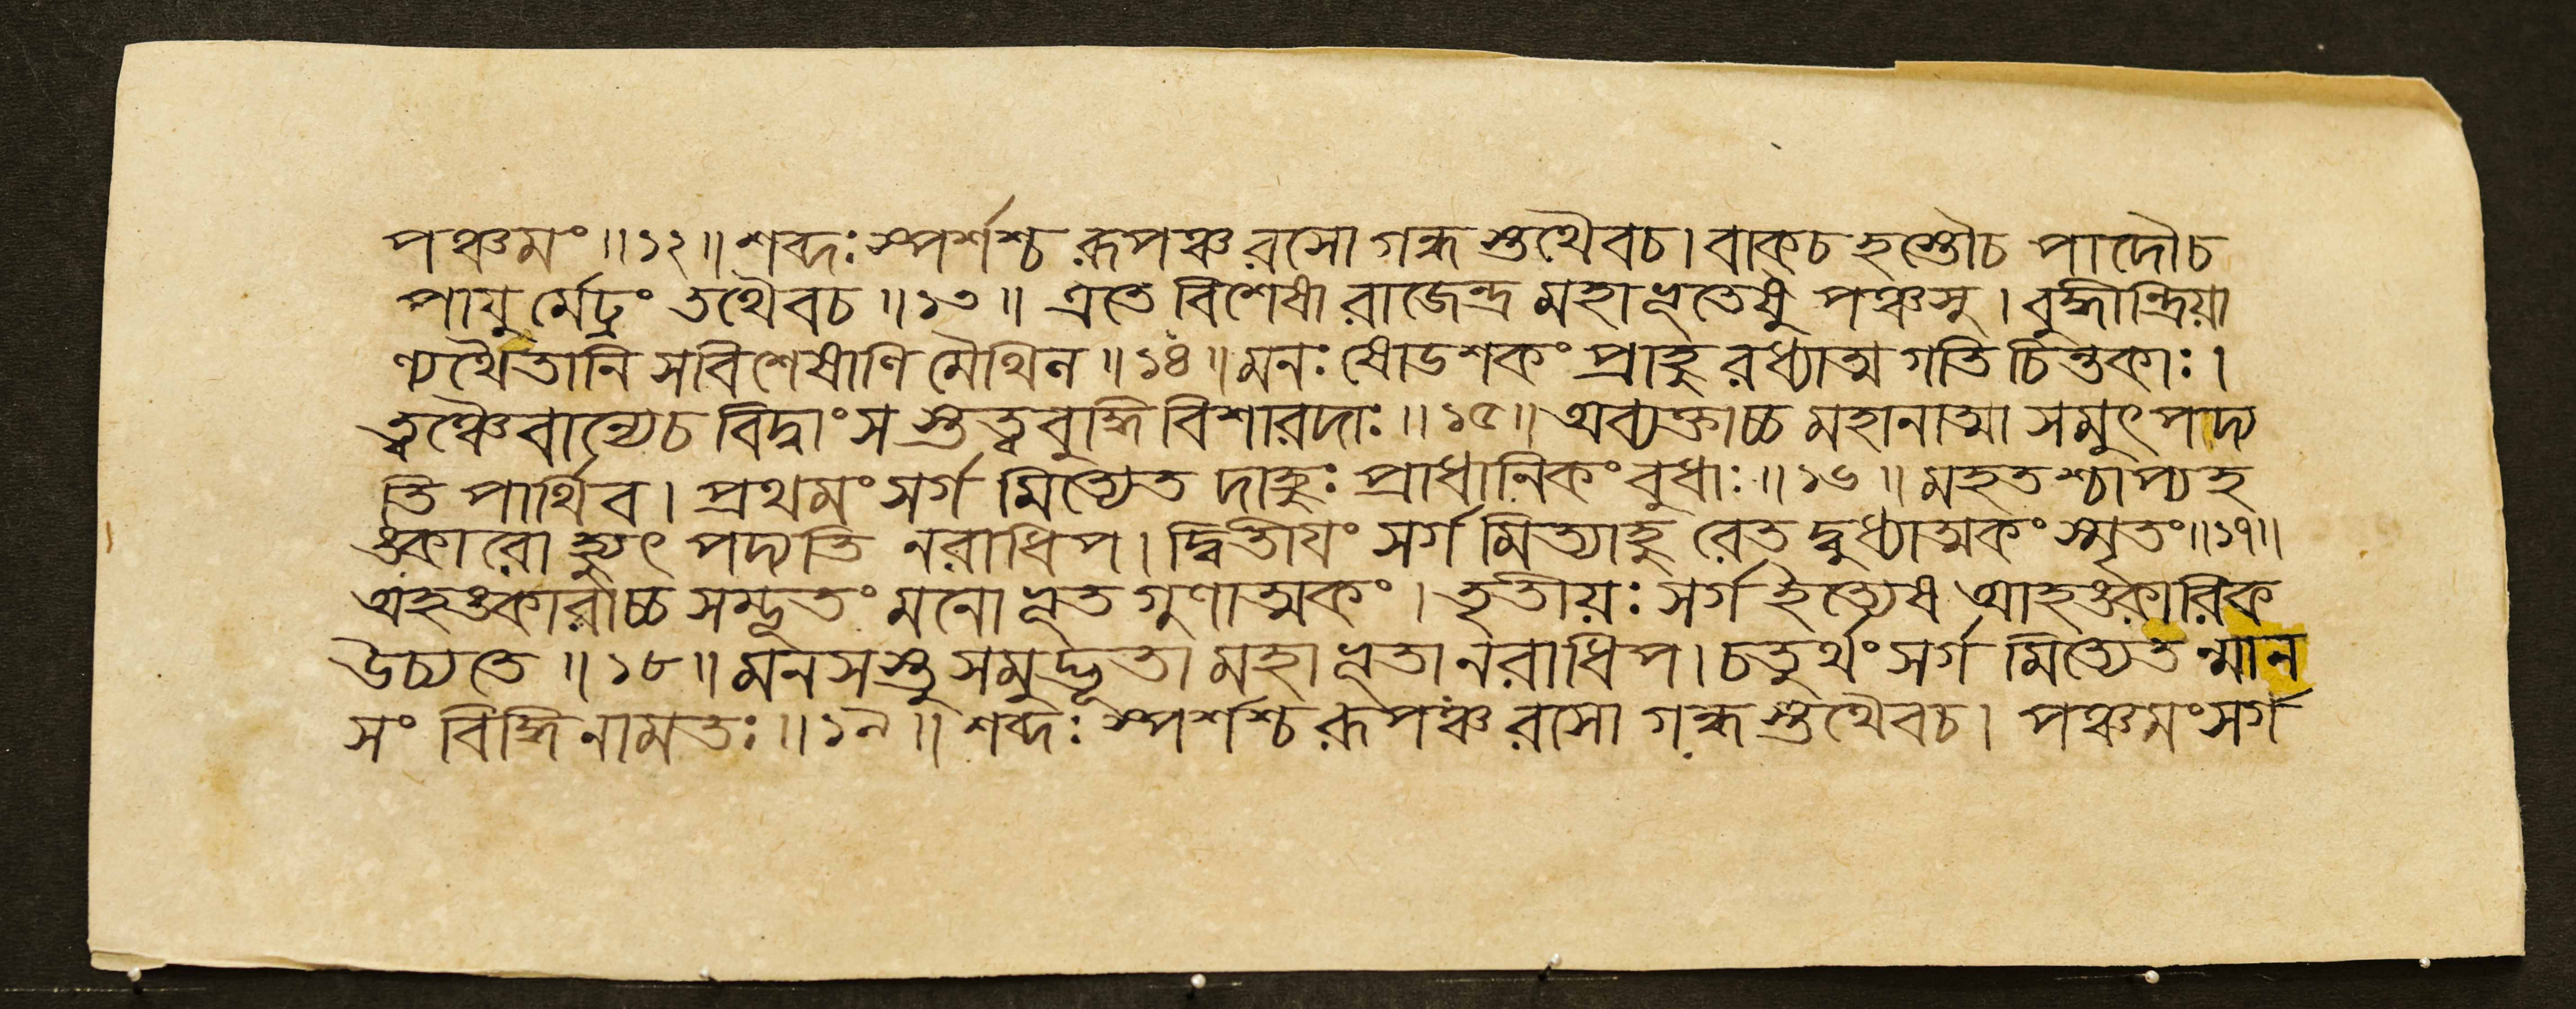 পঞ্চমং॥১২॥শব্দঃস্পর্শশ্চ রূপঞ্চরসো গন্ধ স্তথৈবচ।বাকচ হস্তৌচ পাদৌচ
পায়ুর্মেঢ্রং তথৈবচ॥১৩॥ এতে বিশেষা রাজেন্দ্র মহাভূতেষু পঞ্চসু।বুদ্ধীন্দ্রিয়া
ণ্যথৈতানি সবিশেষাণি মৈথিল॥১৪॥মনঃ ষোডশকং প্রাহু রধ্যাত্ম গতি চিন্তকাঃ।
ত্বঞ্চৈবান্যেচ বিদ্বাংস স্তত্ত্ববুদ্ধি বিশারদাঃ॥১৫॥অব্যক্তাচ্চ মহানাত্মা সমুৎপদ্য
তি পার্থিব। প্রথমং সর্গ মিত্যেত দাহুঃ প্রাধানিকং বুধাঃ॥১৬॥মহতশ্চাপ্যহ
ঙ্কারো হ্যুৎ পদ্যতি নরাধিপ।দ্বিতীয়ং সর্গ মিত্যাহু রেত দ্বুধ্যাত্মকং স্মৃতং॥১৭॥
অহঙ্কারাচ্চ সম্ভূতং মনো ভূত গুণাত্মকং।তৃতীয়ঃ সর্গ ইত্যেষ আহঙ্কারিক
উচ্যতে॥১৮॥মনসস্তু সমুদ্ভূতা মহাভূতা নরাধিপ।চতুর্থং সর্গ মিত্যেত ন্মান
সং বিদ্ধি নামতঃ॥১৯॥ শব্দঃ স্পর্শশ্চ রূপঞ্চ রসো গন্ধ স্তথৈবচ। পঞ্চমং সর্গ